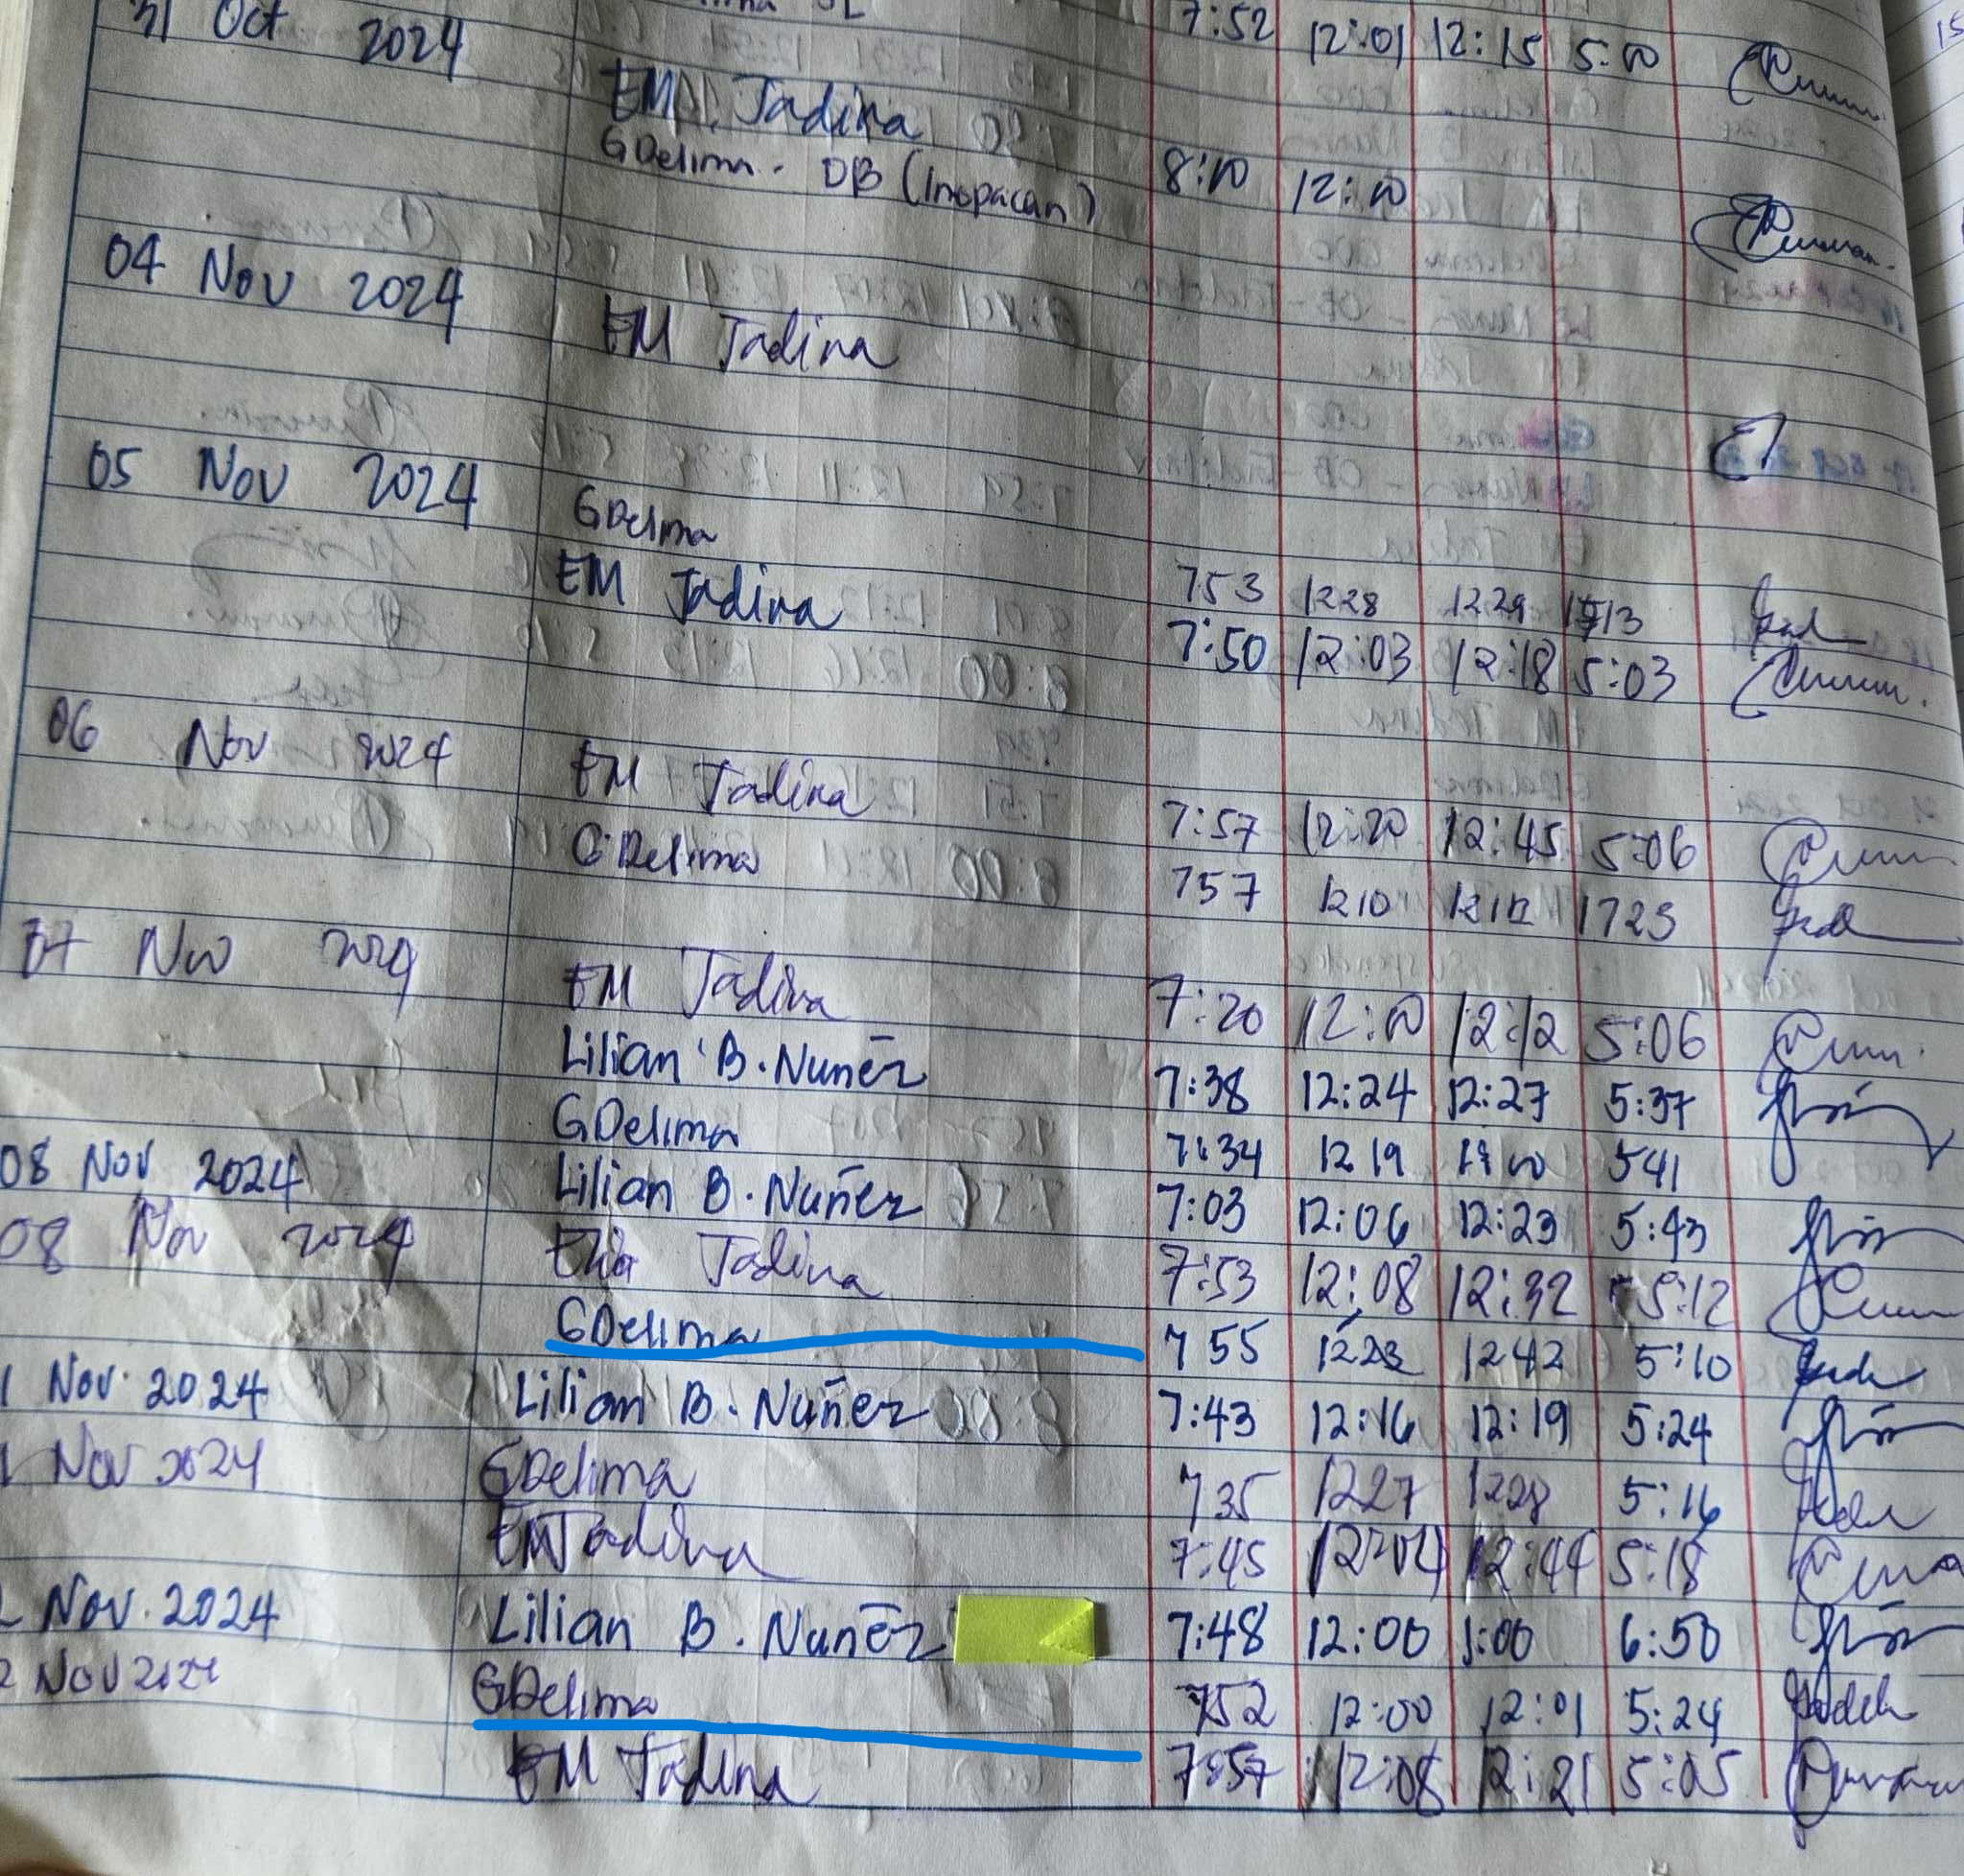 31 Oct 2024 EM Jadina 7:52 12:01 12:15 5:00
GDelima - OB (Inopacan)
04 Nov 2024 EM Jadina 8:00 12:00
05 Nov 2024 GDelima 753 1228 1229 1713
EM Jadina 7:50 12:03 12:18 5:03
06 Nov 2024 EM Jadina 7:57 12:20 12:45 5:06
G Delima 757 1210 1723
07 Nov 2024 EM Jadina 7:20 12:00 12:12 5:06
Lilian B. Nuñez 7:38 12:24 12:27 5:37
GDelima 7:34 1219 541
08 Nov 2024 Lilian B. Nuñez 7:03 12:06 12:23 5:43
08 Nov 2024 Jadina 7:53 12:08 12:32 5:12
GDelima 755 1223 1242 5:10
1 Nov. 2024 Lilian B. Nuñez 7:43 12:16 12:19 5:24
1 Nov 2024 GDelima 735 1227 1228 5:16
EM Jadina 7:45 12:04 12:44 5:18
2 Nov. 2024 Lilian B. Nuñez 7:48 12:00 1:00 6:50
2 Nov 2024 GDelima 752 12:00 12:01 5:24
EM Jadina 7:57 12:08 12:21 5:05